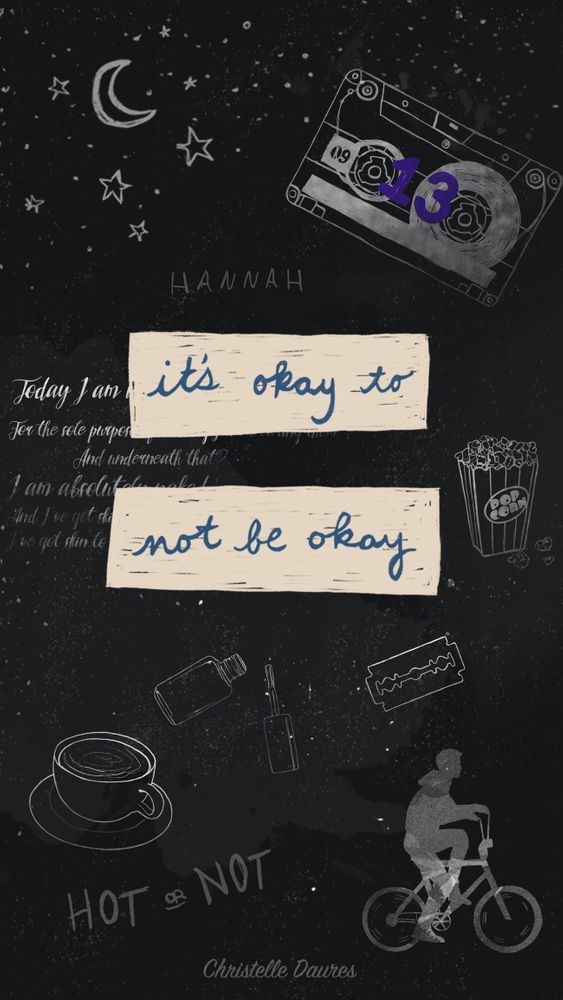 09
13
HANNAH
it's okay to
Today I am
For the sole purpose
And underneath that?
I am absolutely naked
And I've got skin
I've got skin to
not be okay
POP
CORN
HOT OR NOT
Christelle Daures